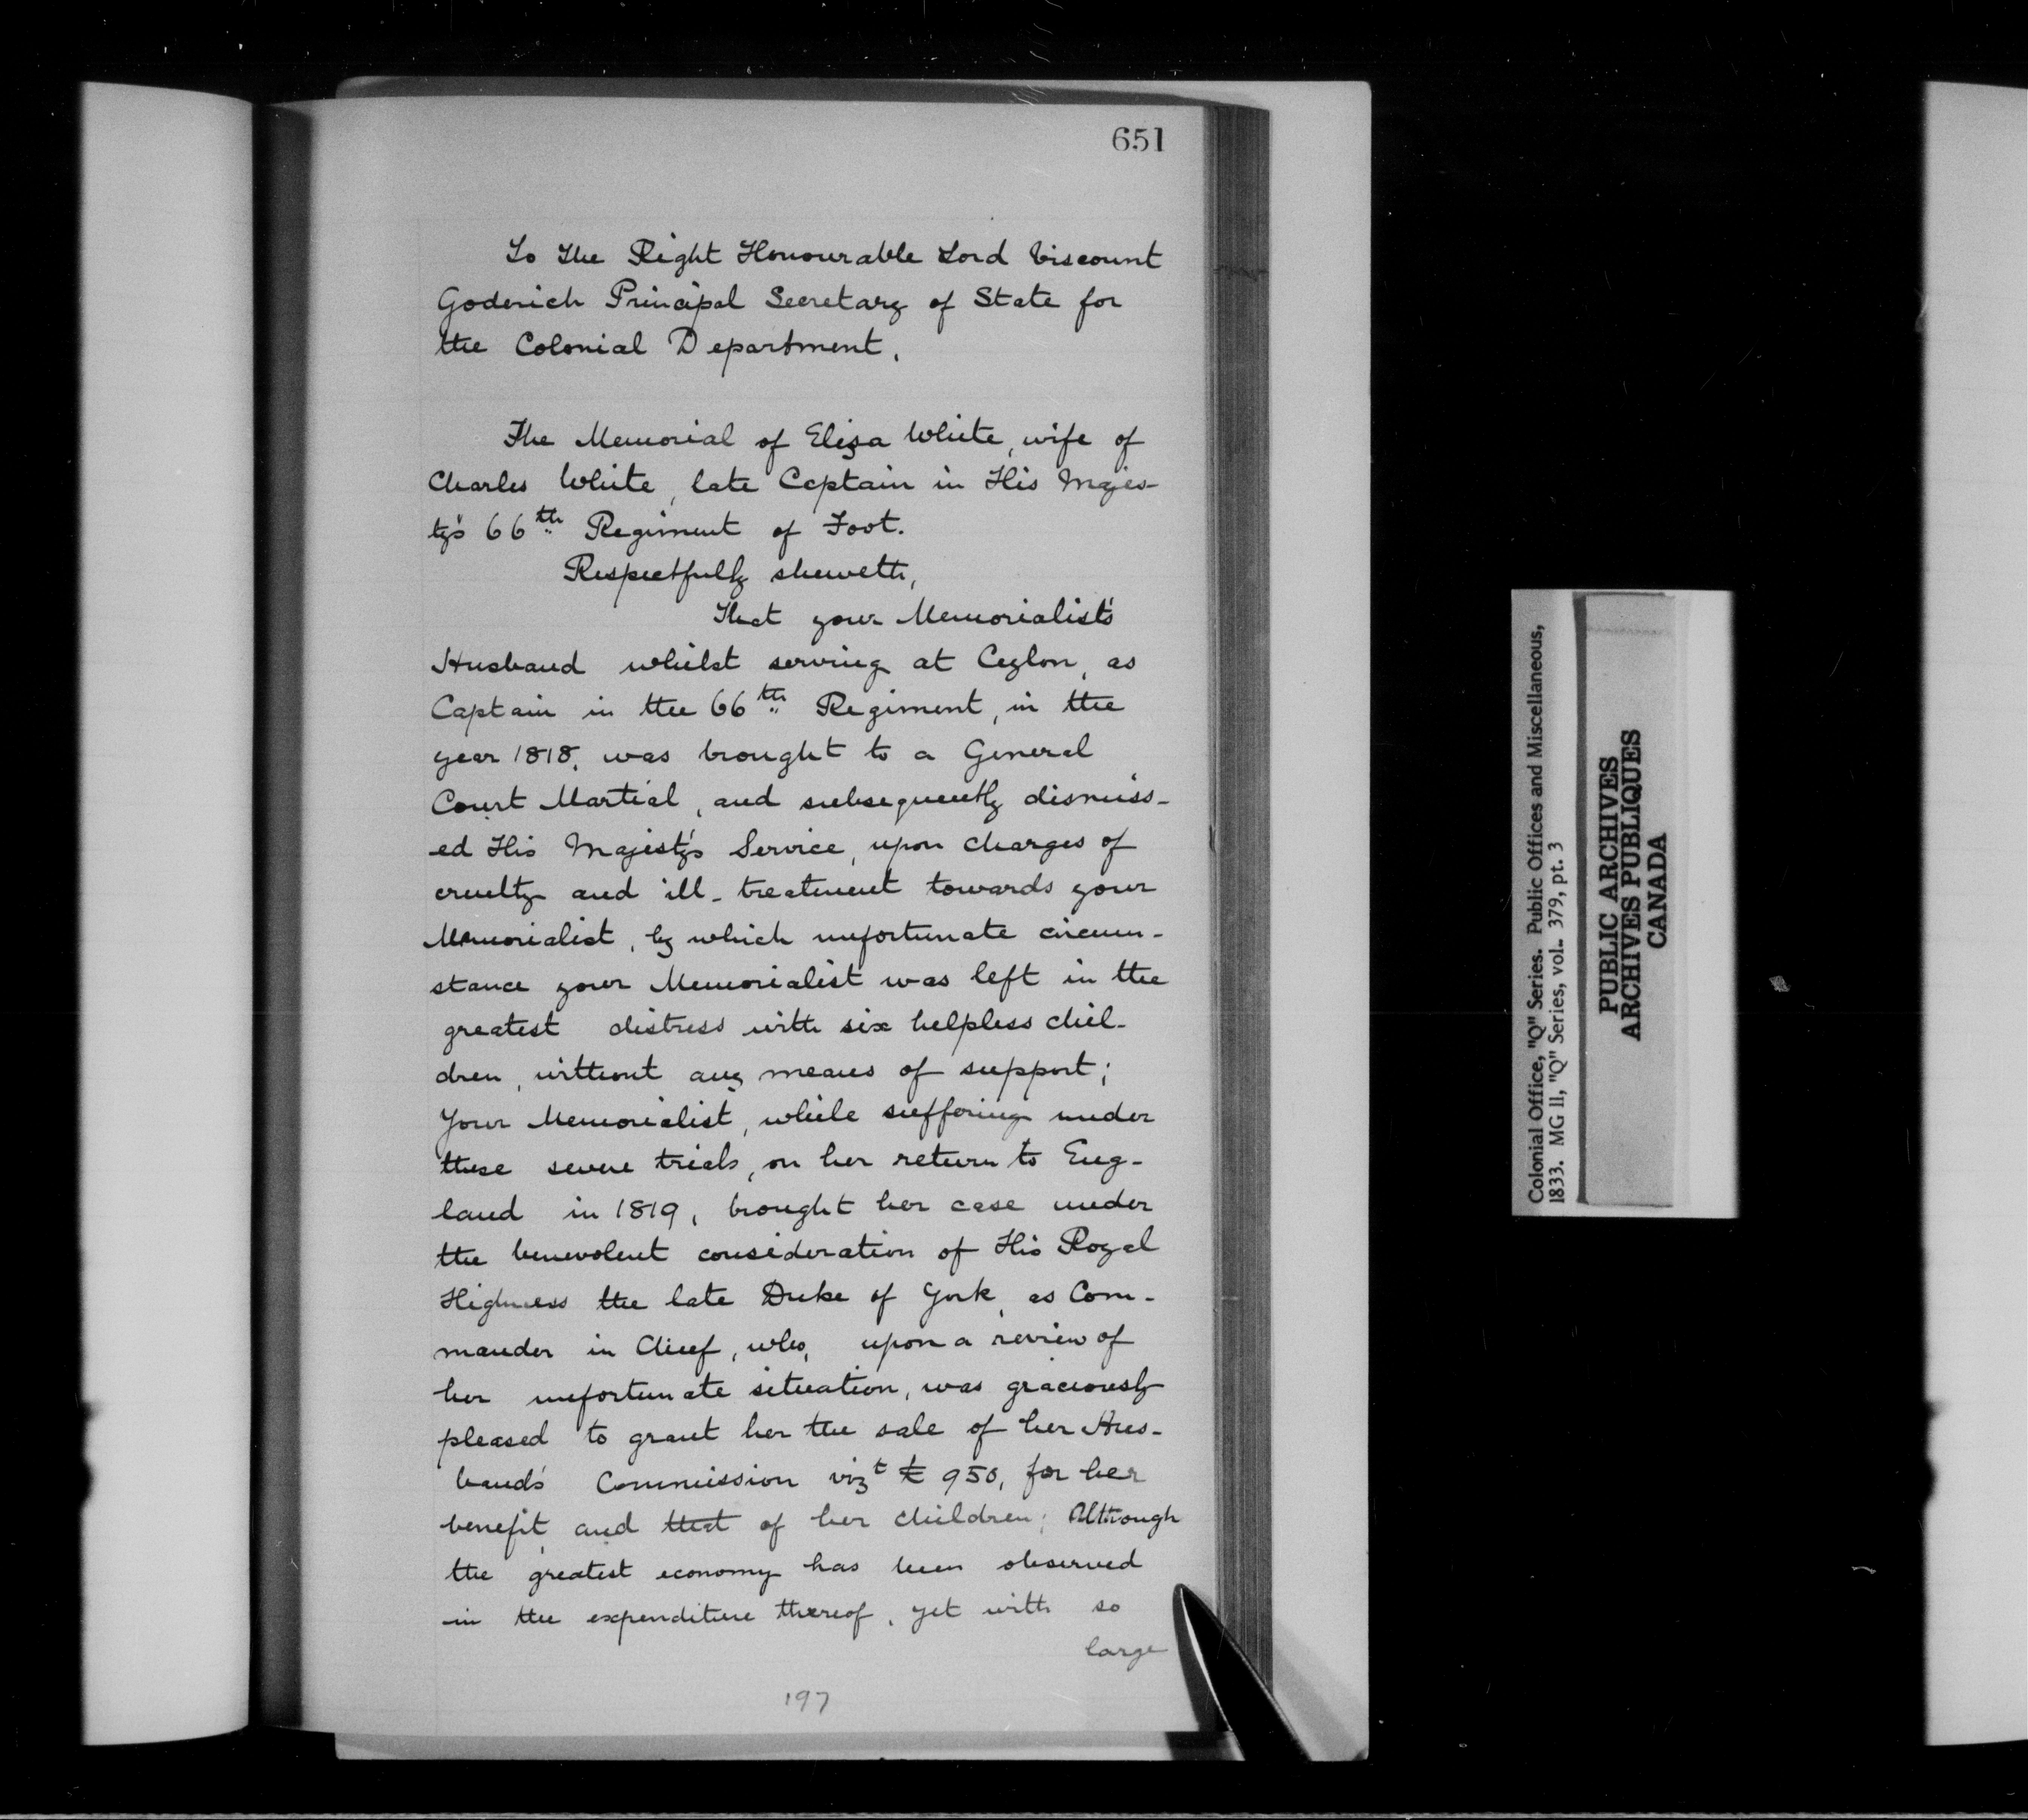 651
To The Right Honourable Lord Viscount
Goderich Principal Secretary of State for
the Colonial Department.
The Memorial of Eliza White, wife of
Charles White, late Captain in His Majes-
ty's 66th Regiment of Foot.
Respectfully sheweth,
That your Memorialist's
Husband whilst serving at Ceylon, as
Captain in the 66th Regiment, in the
year 1818, was brought to a General
Court Martial, and subsequently dismiss-
ed His Majesty's Service, upon charges of
cruelty and ill-treatment towards your
Memorialist, by which unfortunate circum-
stance your Memorialist was left in the
greatest distress with six helpless chil-
dren, without any means of support;
Your Memorialist, while suffering under
these severe trials, on her return to Eng-
land in 1819, brought her case under
the benevolent consideration of His Royal
Highness the late Duke of York, as Com-
mander in Chief, who, upon a review of
her unfortunate situation, was graciously
pleased to grant her the sale of her Hus-
band's Commission vizt £950, for her
benefit, and that of her children; Although
the greatest economy has been observed
in the expenditure thereof, yet with so
large
197
Colonial Office, "Q" Series. Public Offices and Miscellaneous,
1833. MG 11, "Q" Series, vol. 379, pt. 3
PUBLIC ARCHIVES
ARCHIVES PUBLIQUES
CANADA